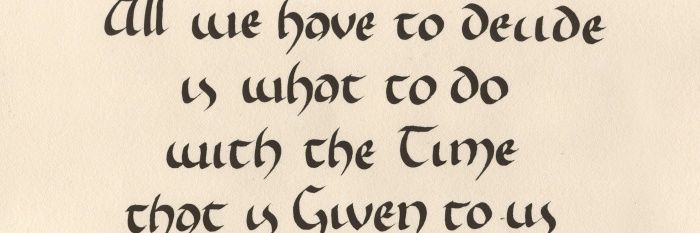 All we have to decide
is what to do
with the Time
that is Given to us